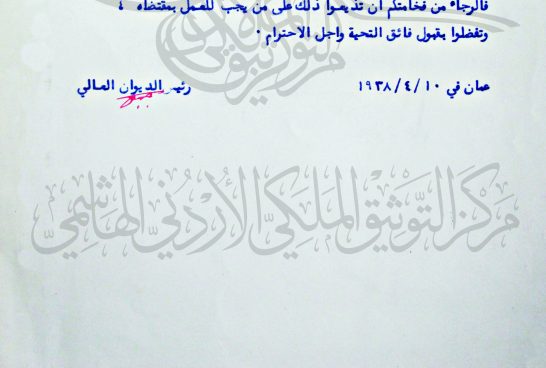 فالرجاء من فخامتكم ان تذيعوا ذلك على من يجب للعمل بمقتضاه ؛
وتفضلوا بقبول فائق التحية واجل الاحترام .
عمان في ١٠ /٤ / ١٩٣٨
رئيس الديوان العالي
مركز التوثيق الملكي الأردني الهاشمي